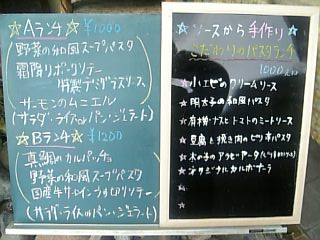 ☆Aランチ☆ ¥1000
野菜の和風スープパスタ
霜降りポークソテー
特製デミグラスソース
サーモンのムニエル
(サラダ・ライスorパン・ジェラート)
☆Bランチ☆ ¥1200
真鯛のカルパッチョ
野菜の和風スープパスタ
国産牛サーロインソテー
(サラダ・ライスorパン・ジェラート)
☆ソースから手作り
こだわりのパスタランチ
1000
★小エビのクリームソース
★明太子の和風パスタ
★有機ナスとトマトのミートソース
★豆腐と挽き肉のピリ辛パスタ
★木の子のアラビアータ
★オリジナルカルボナーラ